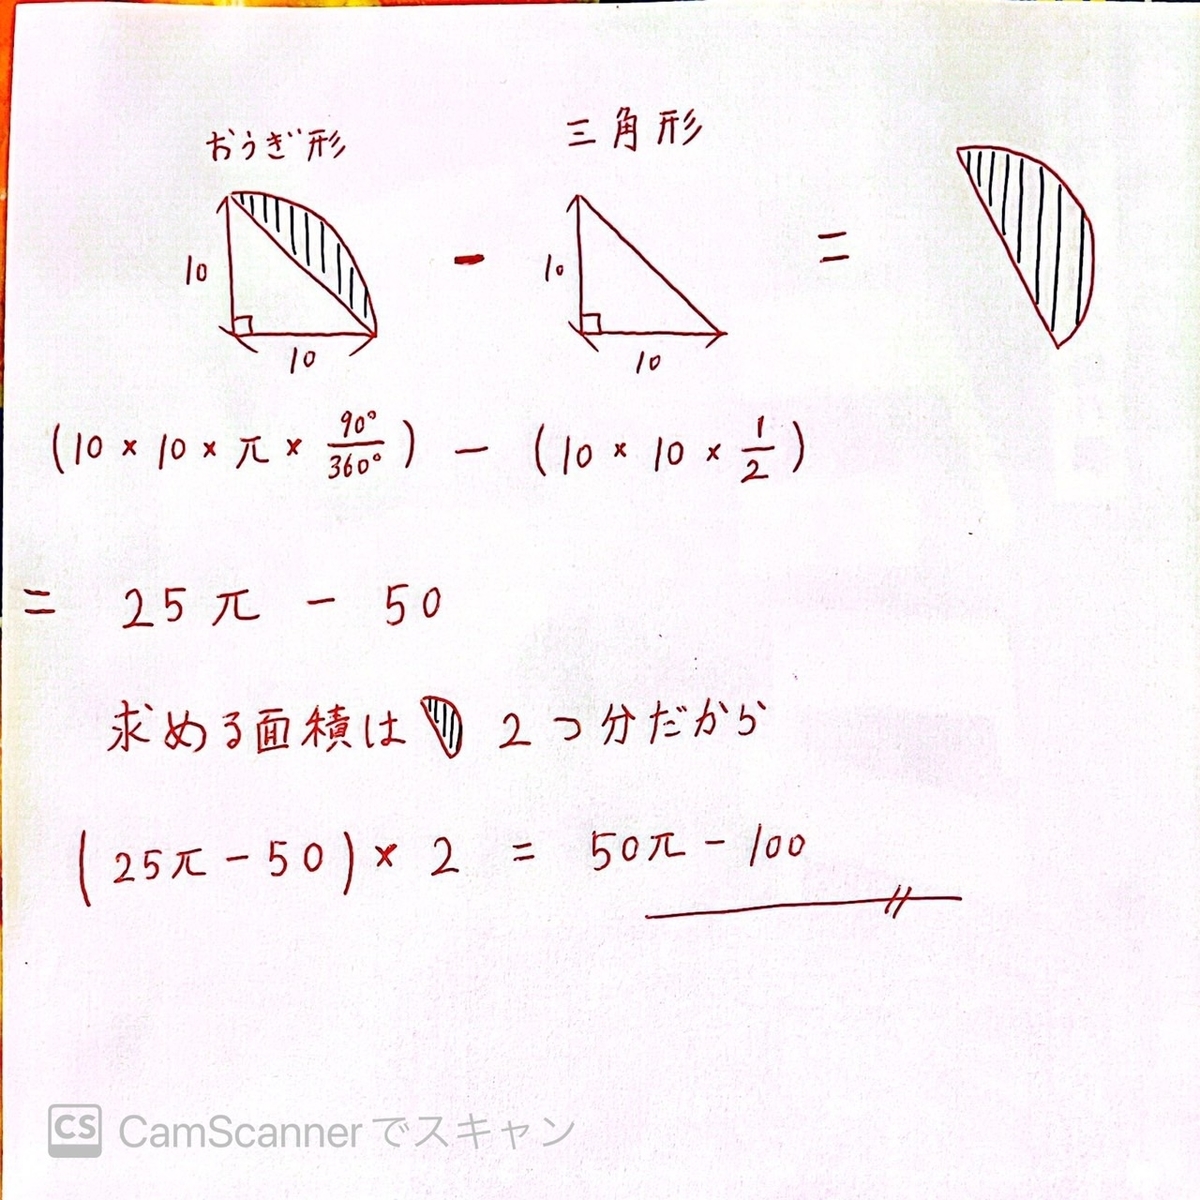 おうぎ形 三角形
10 - 10 =
10 10
(10 × 10 × π × 90°/360°) - (10 × 10 × 1/2)
= 25π - 50
求める面積は 2つ分だから
(25π - 50) × 2 = 50π - 100
CS CamScannerでスキャン